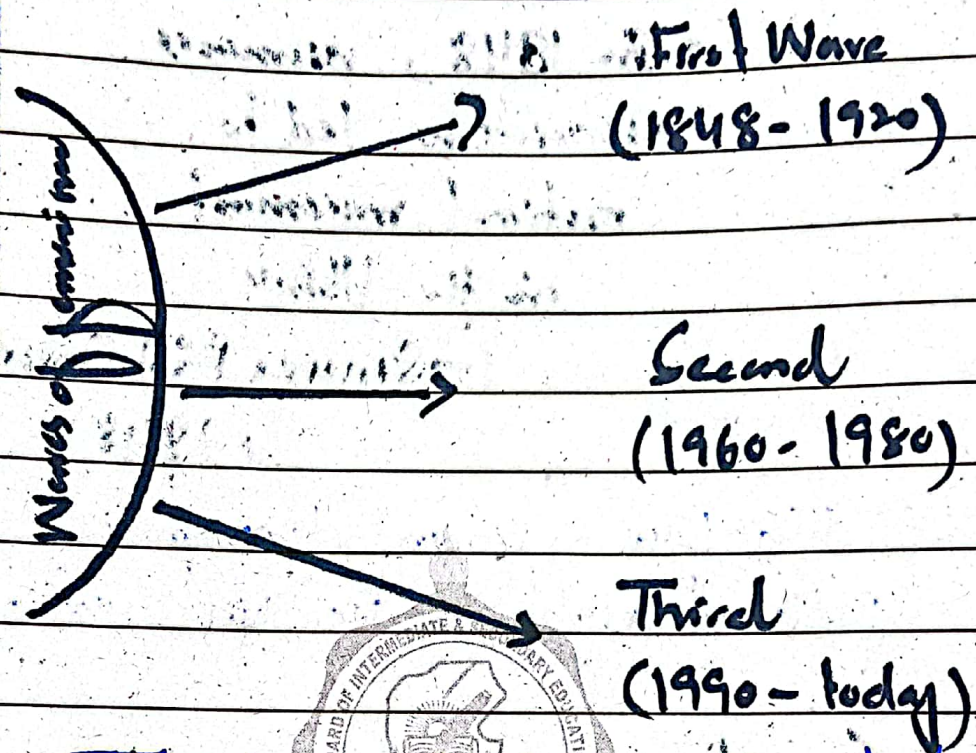 Waves of Feminism
First Wave
(1848 - 1920)
Second
(1960 - 1980)
Third
(1990 - today)
ARD OF INTERMEDIATE & SECONDARY EDUCATI